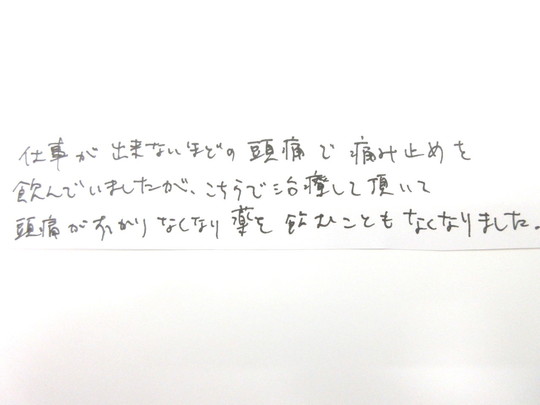 仕事が出来ないほどの頭痛で痛み止めを
飲んでいましたが、こちらで治療して頂いて
頭痛がすっかりなくなり薬を飲むこともなくなりました。